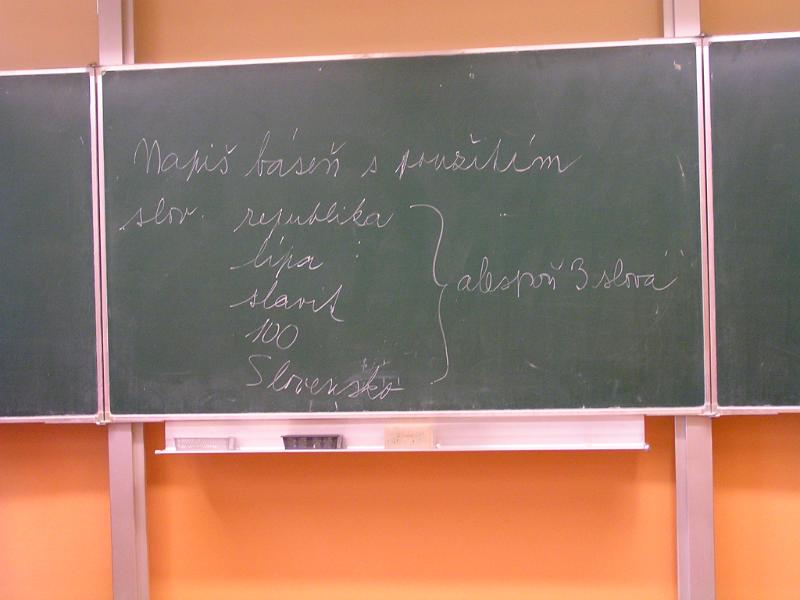 Napiš báseň s použitím
slov. republika
lípa
slavit
alespoň 3 slova
100
Slovensko